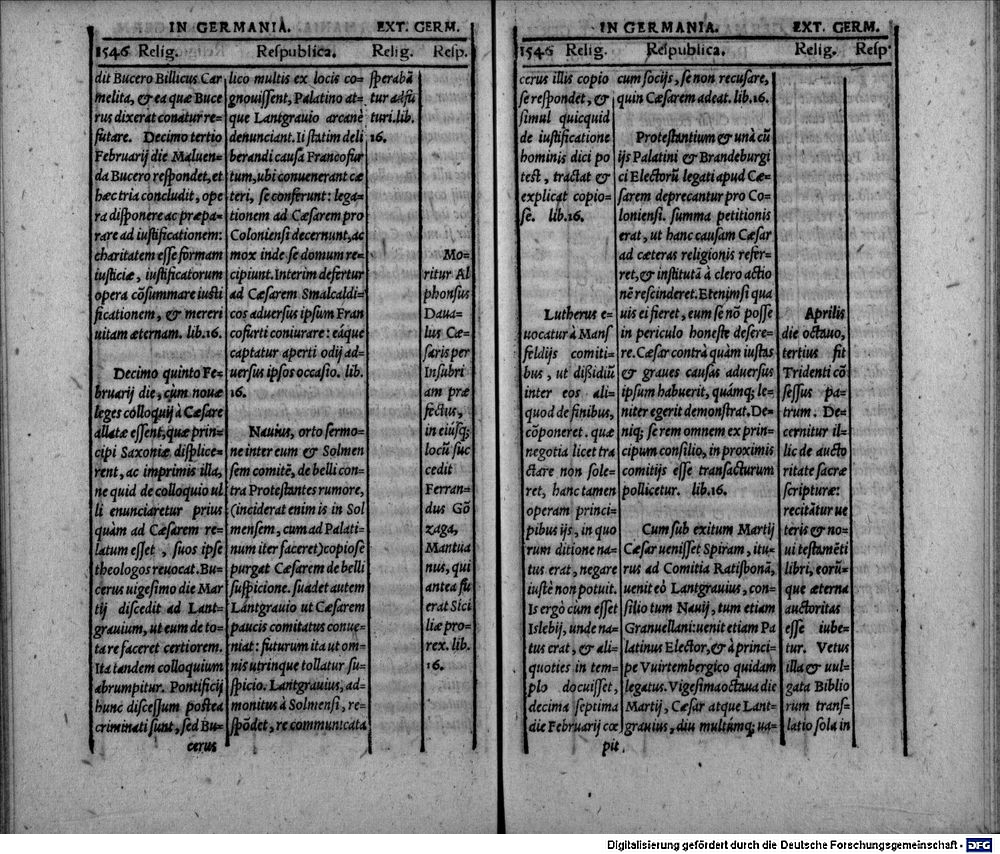 IN GERMANIA. EXT. GERM.
1546 Relig. Respublica. Relig. Resp.
dit Bucero Billicus Car
melita, & ea quæ Buce
rus dixerat conatur re-
futare. Decimo tertio
Februarij die Maluen-
da Bucero respondet, et
hæc tria concludit, ope
ra disponere ac præpa-
rare ad iustificationem:
charitatem esse formam
iusticiæ, iustificatorum
opera cōsummare iusti
ficationem, & mereri
uitam æternam. lib.16.
Decimo quinto Fe-
bruarij die, cùm nouæ
leges colloquij à Cæsare
allatæ essent, quæ prin-
cipi Saxoniæ displice-
rent, ac imprimis illa,
ne quid de colloquio ul
li enunciaretur prius
quàm ad Cæsarem re-
latum esset, suos ipse
theologos reuocat. Bu-
cerus uigesimo die Mar
tij discedit ad Lant-
grauium, ut eum de to-
ta re faceret certiorem.
Ita tandem colloquium
abrumpitur. Pontificij
hunc discessum postea
criminati sunt, sed Bu-
cerus
lico multis ex locis co-
gnouissent, Palatino at-
que Lantgrauio arcanè
denunciant. Ii statim deli
berandi causa Francofur
tum, ubi conuenerant cæ
teri, se conferunt: lega-
tionem ad Cæsarem pro
Coloniensi decernunt, ac
mox inde se domum re-
cipiunt. Interim defertur
ad Cæsarem Smalcaldi-
cos aduersus ipsum Fran
cofurti coniurare: eáque
captatur aperti odij ad-
uersus ipsos occasio. lib.
16.
Nauius, orto sermo-
ne inter eum & Solmen
sem comitē, de belli con-
tra Protestantes rumore,
(inciderat enim is in Sol
mensem, cum ad Palati-
num iter faceret) copiose
purgat Cæsarem de belli
suspicione. suadet autem
Lantgrauio ut Cæsarem
paucis comitatus conue-
niat: futurum ita ut om-
nis utrinque tollatur su-
spicio. Lantgrauius, ad-
monitus à Solmensi, re-
spōdet, re communicata
sperabā
tur adfu
turi. lib.
16.
Mo-
ritur Al
phonsus
Daua-
lus Cæ-
saris per
Insubri
am præ
fectus,
in eiúsq;
locū suc
cedit
Ferran-
dus Gō
zaga,
Mantua
nus, qui
antea fu
erat Sici
liæ pro-
rex. lib.
16.
IN GERMANIA. EXT. GERM.
1546 Relig. Respublica. Relig. Resp.
cerus illis copio
se respondet, &
simul quicquid
de iustificatione
hominis dici po
test, tractat &
explicat copio-
se. lib.16.
Lutherus e-
uocatur à Mans
feldijs comiti-
bus, ut dißidiū
inter eos ali-
quod de finibus,
cōponeret. quæ
negotia licet tra
ctare non sole-
ret, hanc tamen
operam princi-
pibus ijs, in quo
rum ditione na-
tus erat, negare
iustè non potuit.
Is ergò cùm esset
Islebij, unde na-
tus erat, & ali-
quoties in tem-
plo docuisset,
decima septima
die Februarij cœ
pit
cum socijs, se non recusare,
quin Cæsarem adeat. lib.16.
Protestantium & unà cū
ijs Palatini & Brandeburgi
ci Electorū legati apud Cæ-
sarem deprecantur pro Co-
loniensi. summa petitionis
erat, ut hanc causam Cæsar
ad cæteras religionis refer-
ret, & institutā à clero actio
nē rescinderet. Etenim si qua
uis ei fieret, eum se nō posse
in periculo honeste desere-
re. Cæsar contrà quàm iustas
& graues causas aduersus
ipsum habuerit, quámq; le-
niter egerit demonstrat. De-
niq; se rem omnem ex prin-
cipum consilio, in proximis
comitijs esse transacturum
pollicetur. lib.16.
Cum sub exitum Martij
Cæsar uenisset Spiram, itu-
rus ad Comitia Ratisbonā,
uenit eò Lantgrauius, con-
silio tum Nauij, tum etiam
Granuellani: uenit etiam Pa
latinus Elector, & à princi-
pe Vuirtembergico quidam
legatus. Vigesima octaua die
Martij, Cæsar atque Lant-
grauius, diu multúmq; ua-
Aprilis
die octauo,
tertius fit
Tridenti cō
sessus pa-
trum. De-
cernitur il-
lic de aucto
ritate sacræ
scripturæ:
recitātur ue
teris & no-
ui testamēti
libri, eorū-
que æterna
auctoritas
esse iube-
tur. Vetus
illa & uul-
gata Biblio
rum trans-
latio sola in
Digitalisierung gefördert durch die Deutsche Forschungsgemeinschaft - DFG